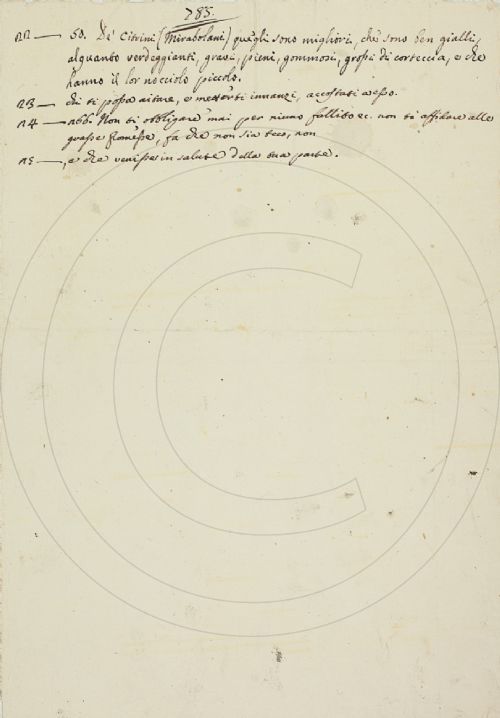 785.
22 — 50. De' Citrini (Mirabolani) quegli sono migliori, che sono ben gialli,
alquanto verdeggianti, gravi, pieni, gommosi, grossi di corteccia, e che
hanno il lor nocciolo piccolo.
23 — chi ti possa aitare, e metterti innanzi, accostati a esso.
24 — 266. Non ti obbligare mai per niuno fallito ec. non ti affidare alle
grasse promesse, fa che non sia teco, non
25 —, e che venisse in salute della sua parte.